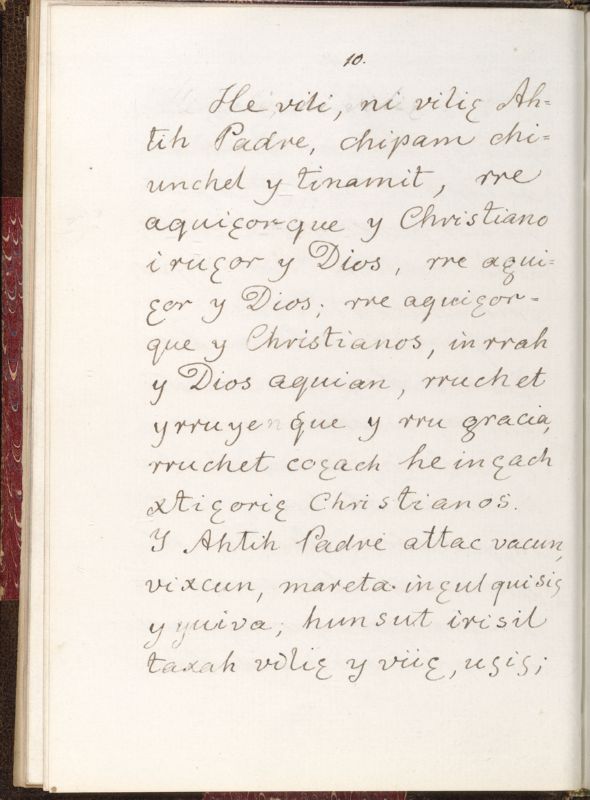 10.
He vili, ni viliꜫ Ah=
tih Padre, chipam chi=
unchel y tinamit, rre
aquiꜫorque y Christiano
i ruꜫor y Dios, rre aqui=
ꜫor y Dios; rre aquiꜫor-
que y Christianos, in rrah
y Dios aquian, rruchet
y rruyen que y rru gracia,
rruchet coꜫach he inꜫach
xtiꜫoriꜫ Christianos.
Y Ahtih Padre attac vacun,
vixcun, mareta inꜫul quisiꜫ
y yuiva; hunsut irisil
taxah viliꜫ y viiꜫ, uꜫiꜫ;